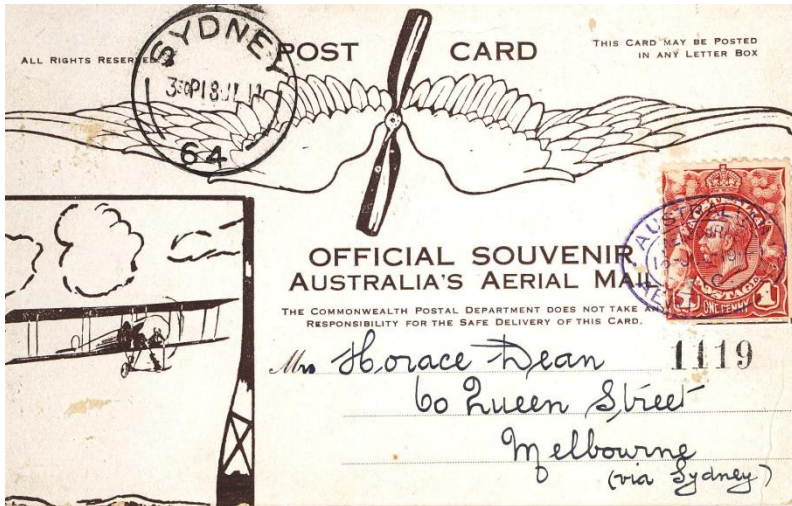 SYDNEY
64
ALL RIGHTS RESERVED
POST CARD
THIS CARD MAY BE POSTED
IN ANY LETTER BOX
OFFICIAL SOUVENIR
AUSTRALIA'S AERIAL MAIL
THE COMMONWEALTH POSTAL DEPARTMENT DOES NOT TAKE ANY
RESPONSIBILITY FOR THE SAFE DELIVERY OF THIS CARD.
AUSTRALIAN
POSTAGE
1 ONE PENNY 1
Mrs Horace Dean 1119
60 Queen Street
Melbourne
(via Sydney)